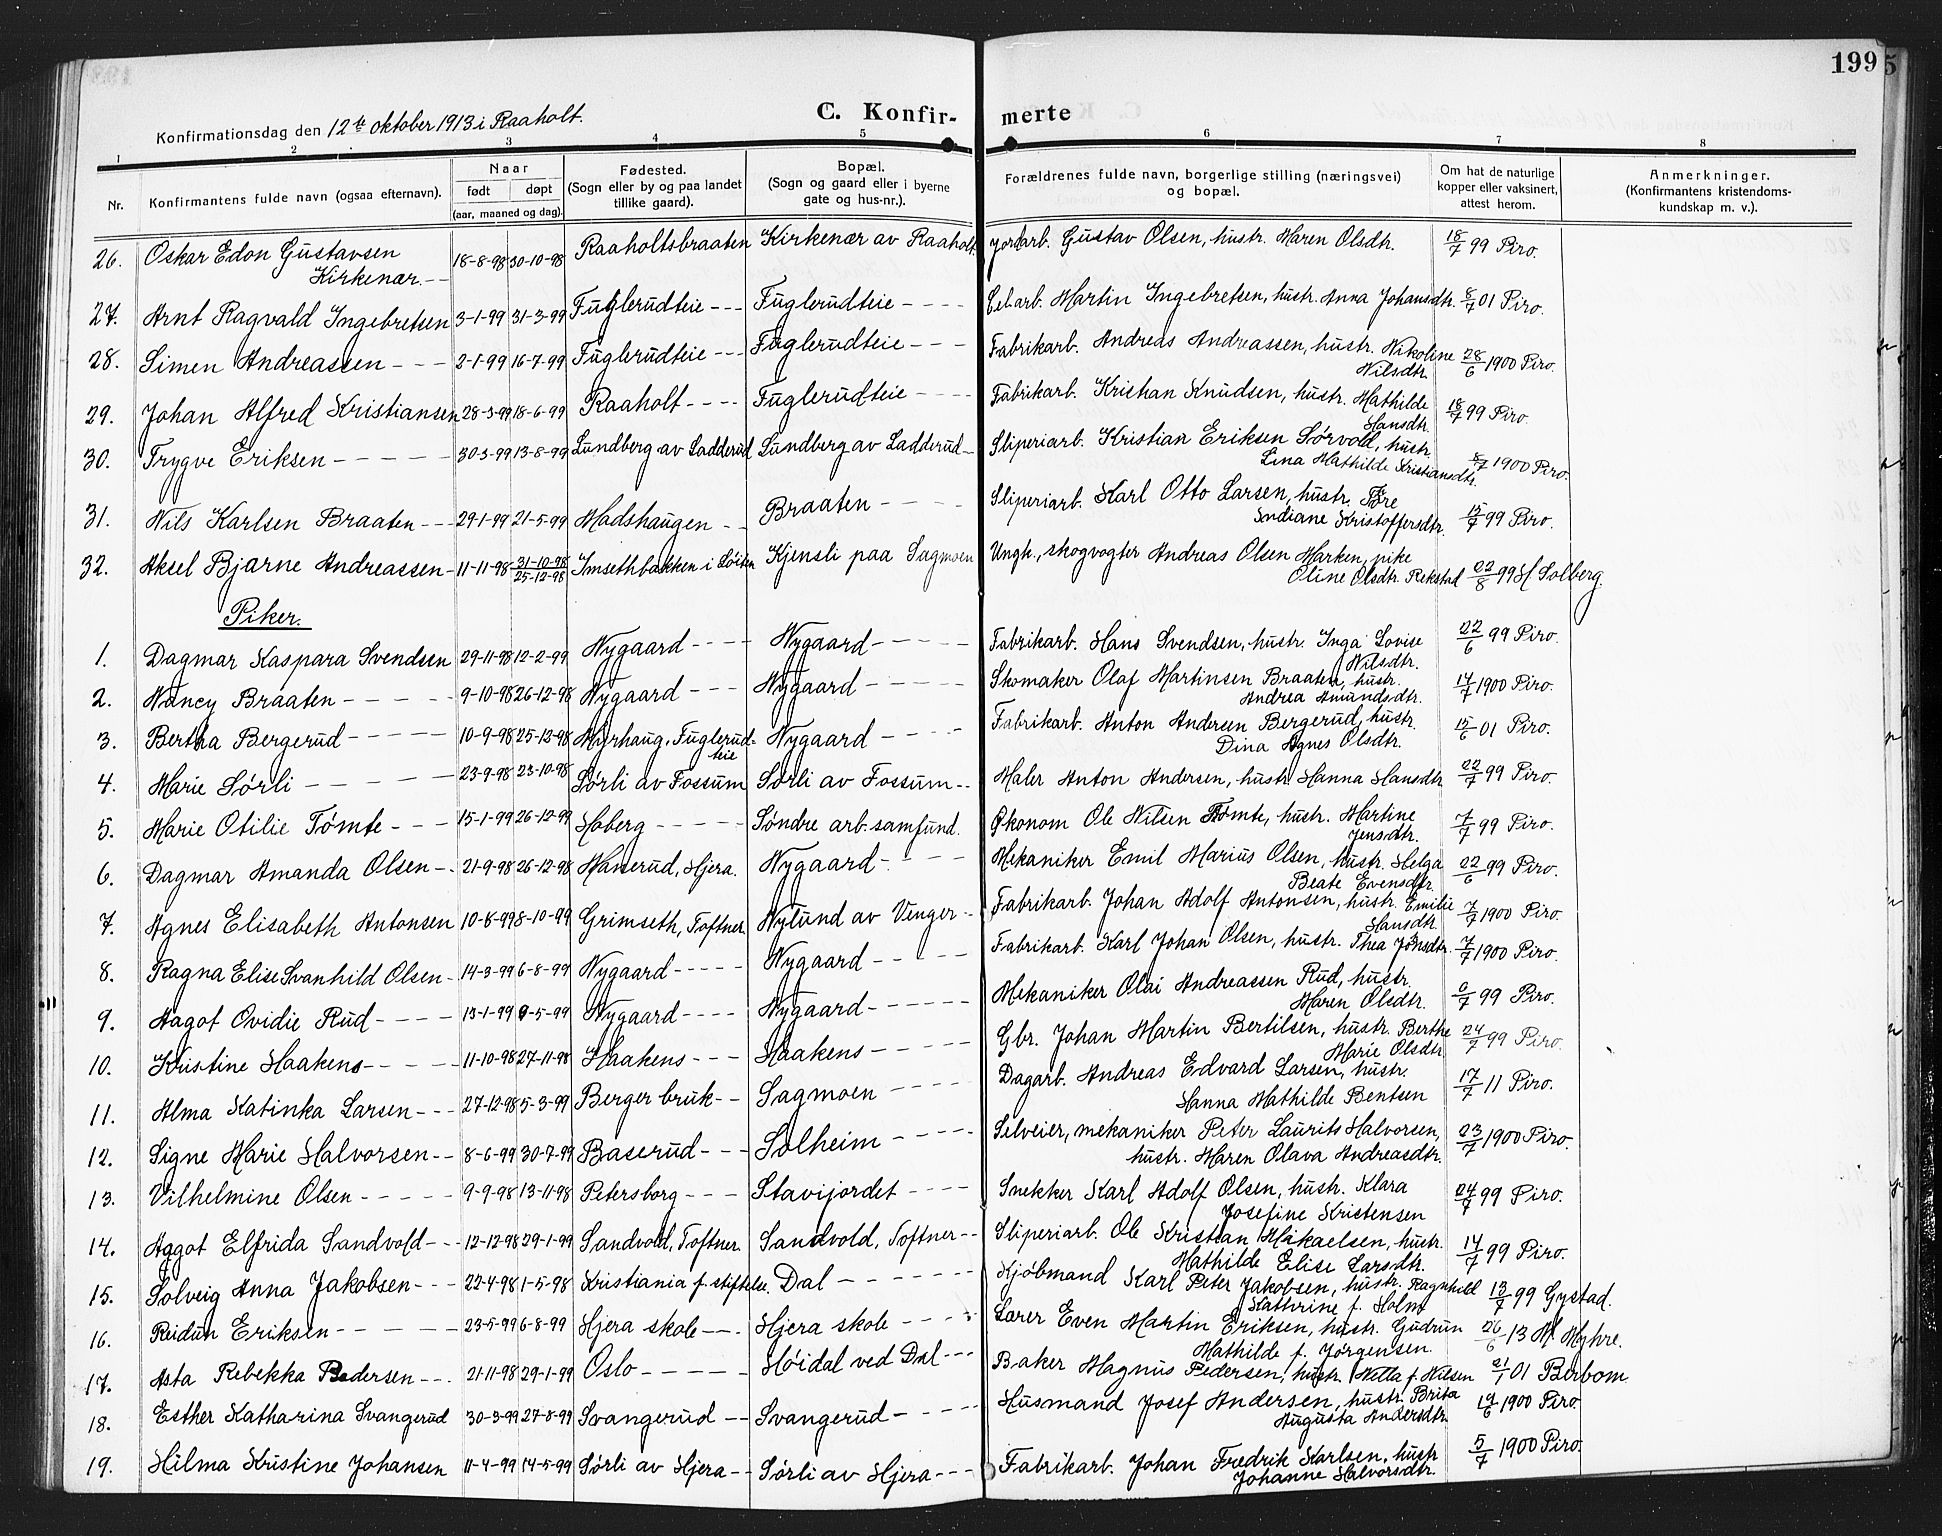 199
5
C. Konfir- merte
Konfirmationsdag den 12te oktober 1913 i Raaholt.
1 2 3 4 5 6 7 8
Nr.
Konfirmantens fulde navn (ogsaa efternavn).
Naar
født døpt
(aar, maaned og dag).
Fødested.
(Sogn eller by og paa landet
tillike gaard).
Bopæl.
(Sogn og gaard eller i byerne
gate og hus-nr.).
Forældrenes fulde navn, borgerlige stilling (næringsvei)
og bopæl.
Om hat de naturlige
kopper eller vaksinert,
attest herom.
Anmerkninger.
(Konfirmantens kristendoms-
kundskap m. v.).
26. Oskar Edon Gustavsen 18-8-98 30-10-98 Raaholtsbraaten Kirkenær av Raaholt Jordarb. Gustav Olsen, hustr. Maren Olsdtr. 18/7 99 Piro.
Kirkenær.--
27. Arnt Ragvald Ingebretsen 3-1-99 31-3-99 Fuglerudteie --- Fuglerudteie ---- Martin Ingebretsen, hustr. Anna Johansdtr. 8/7 01 Piro.
28. Simen Andreassen --- 2-1-99 16-7-99 Fuglerudteie --- Fuglerudteie --- Fabrikarb. Andreas Andreassen, hustr. Nikoline 28/6 1900 Piro.
Nilsdtr.
29. Johan Alfred Kristiansen 28-3-99 18-6-99 Raaholt ---- Fuglerudteie ---- Fabrikarb. Kristian Knudsen, hustr. Mathilde 18/7 99 Piro.
Hansdtr.
30. Trygve Eriksen ----- 30-3-99 13-8-99 Lundberg av Ladderud Lundberg av Ladderud- Sliperiarb. Kristian Eriksen Sørvold, hustr.
Lina Mathilde Kristiansdtr. 8/7 1900 Piro.
31. Nils Karlsen Braaten -- 29-1-99 21-5-99 Madshaugen -- Braaten ---- Sliperiarb. Karl Otto Larsen, hustr. Tore
Indiane Kristoffersdtr. 15/7 99 Piro.
32. Aksel Bjarne Andreassen- 11-11-98 31-10-98 Imsethbakken i Løiten Kjensli paa Sagmoen Ungk., skogvogter Andreas Olsen Marken, pike
25-12-98 Oline Olsdtr. Rekstad 22/8 99 H Solberg.
Piker.
1. Dagmar Kaspara Svendsen 29-11-98 12-2-99 Nygaard ---- Nygaard ----- Fabrikarb. Hans Svendsen, hustr. Inga Lovise 22/6 99 Piro.
Nilsdtr.
2. Nancy Braaten ----- 9-10-98 26-12-98 Nygaard --- Nygaard ----- Skomaker Olaf Martinsen Braaten, hustr. 17/7 1900 Piro.
Andrea Amundsdtr.
3. Bertha Bergerud ----- 10-9-98 25-12-98 Myrhaug, Fuglerud- Nygaard ---- Fabrikarb. Anton Andersen Bergerud, hustr. 15/6 01 Piro.
teie Dina Agnes Olsdtr.
4. Marie Sørli ---- 23-9-98 23-10-98 Sørli av Fossum Sørli av Fossum-- Maler Anton Andersen, hustr. Hanna Hansdtr. 22/7 99 Piro.
5. Marie Otilie Tømte --- 15-1-99 26-12-99 Hoberg ----- Søndre arb.samfund. Økonom Ole Nilsen Tømte, hustr. Martine 7/7 99 Piro.
Jensdtr.
6. Dagmar Amanda Olsen-- 21-9-98 26-12-98 Hanserud, Hjera. Nygaard ---- Mekaniker Emil Marius Olsen, hustr. Helga 22/6 99 Piro.
Beate Evensdtr.
7. Agnes Elisabeth Antonsen 10-8-99 8-10-99 Grimseth, Toftner. Nylund av Venger-- Fabrikarb. Johan Adolf Antonsen, hustr. Emilie 7/7 1900 Piro.
Hansdtr.
8. Ragna Elise Svanhild Olsen- 14-3-99 6-8-99 Nygaard ----- Nygaard ---- Fabrikarb. Karl Johan Olsen, hustr. Thea Jonsdtr. 7/7 1900 Piro.
9. Aagot Ovidie Rud ---- 13-1-99 9-5-99 Nygaard ---- Nygaard ----- Mekaniker Olai Andreassen Rud, hustr.
Maren Olsdtr. 6/7 99 Piro.
10. Kristine Haakens ----- 11-10-98 27-11-98 Haakens --- Haakens ----- Gbr. Johan Martin Bertilsen, hustr. Berthe 24/7 99 Piro.
Marie Olsdtr.
11. Alma Katinka Larsen --- 27-12-98 5-3-99 Berger bruk-- Sagmoen ---- Dagarb. Andreas Edvard Larsen, hustr.
Hanna Mathilde Bentsen 17/7 11 Piro.
12. Signe Marie Halvorsen-- 8-6-99 30-7-99 Baserud --- Solheim ---- Selveier, mekaniker Peter Laurits Halvorsen, 23/7 1900 Piro.
hustr. Maren Olava Andreasdtr.
13. Vilhelmine Olsen ----- 9-9-98 13-11-98 Petersborg --- Stavijordet ---- Snekker Karl Adolf Olsen, hustr. Klara 24/7 99 Piro.
Josefine Kristensen
14. Aggot Elfrida Sandvold-- 12-12-98 29-1-99 Sandvold, Toftner. Sandvold, Toftner-- Sliperiarb. Ole Kristian Mikaelsen, hustr. 14/7 99 Piro.
Mathilde Elise Larsdtr.
15. Solveig Anna Jakobsen --- 22-4-98 1-5-98 Kristiania f. stiftelse. Dal ------ Kjøbmand Karl Peter Jakobsen, hustr. Ragnhild 13/7 99 Gystad.
Kathrine f. Holm
16. Reidun Eriksen ----- 23-5-99 6-8-99 Hjera skole --- Hjera skole ---- Lærer Even Martin Eriksen, hustr. Gudrun 26/6 13 M Myhre.
Mathilde f. Jørgensen.
17. Asta Rebekka Pedersen --- 21-11-98 29-1-99 Oslo ----- Høidal ved Dal --- Baker Magnus Pedersen, hustr. Netta f. Nilsen 21/1 01 Berbom
18. Esther Katharina Svangerud 30-3-99 27-8-99 Svangerud -- Svangerud ---- Husmand Josef Andersen, hustr. Brita 19/6 1900 Piro.
Augusta Andersdtr.
19. Hilma Kristine Johansen 11-4-99 14-5-99 Sørli av Hjera-- Sørli av Hjera --- Fabrikarb. Johan Fredrik Karlsen, hustr. 5/7 1900 Piro.
Johanne Halvorsdtr.